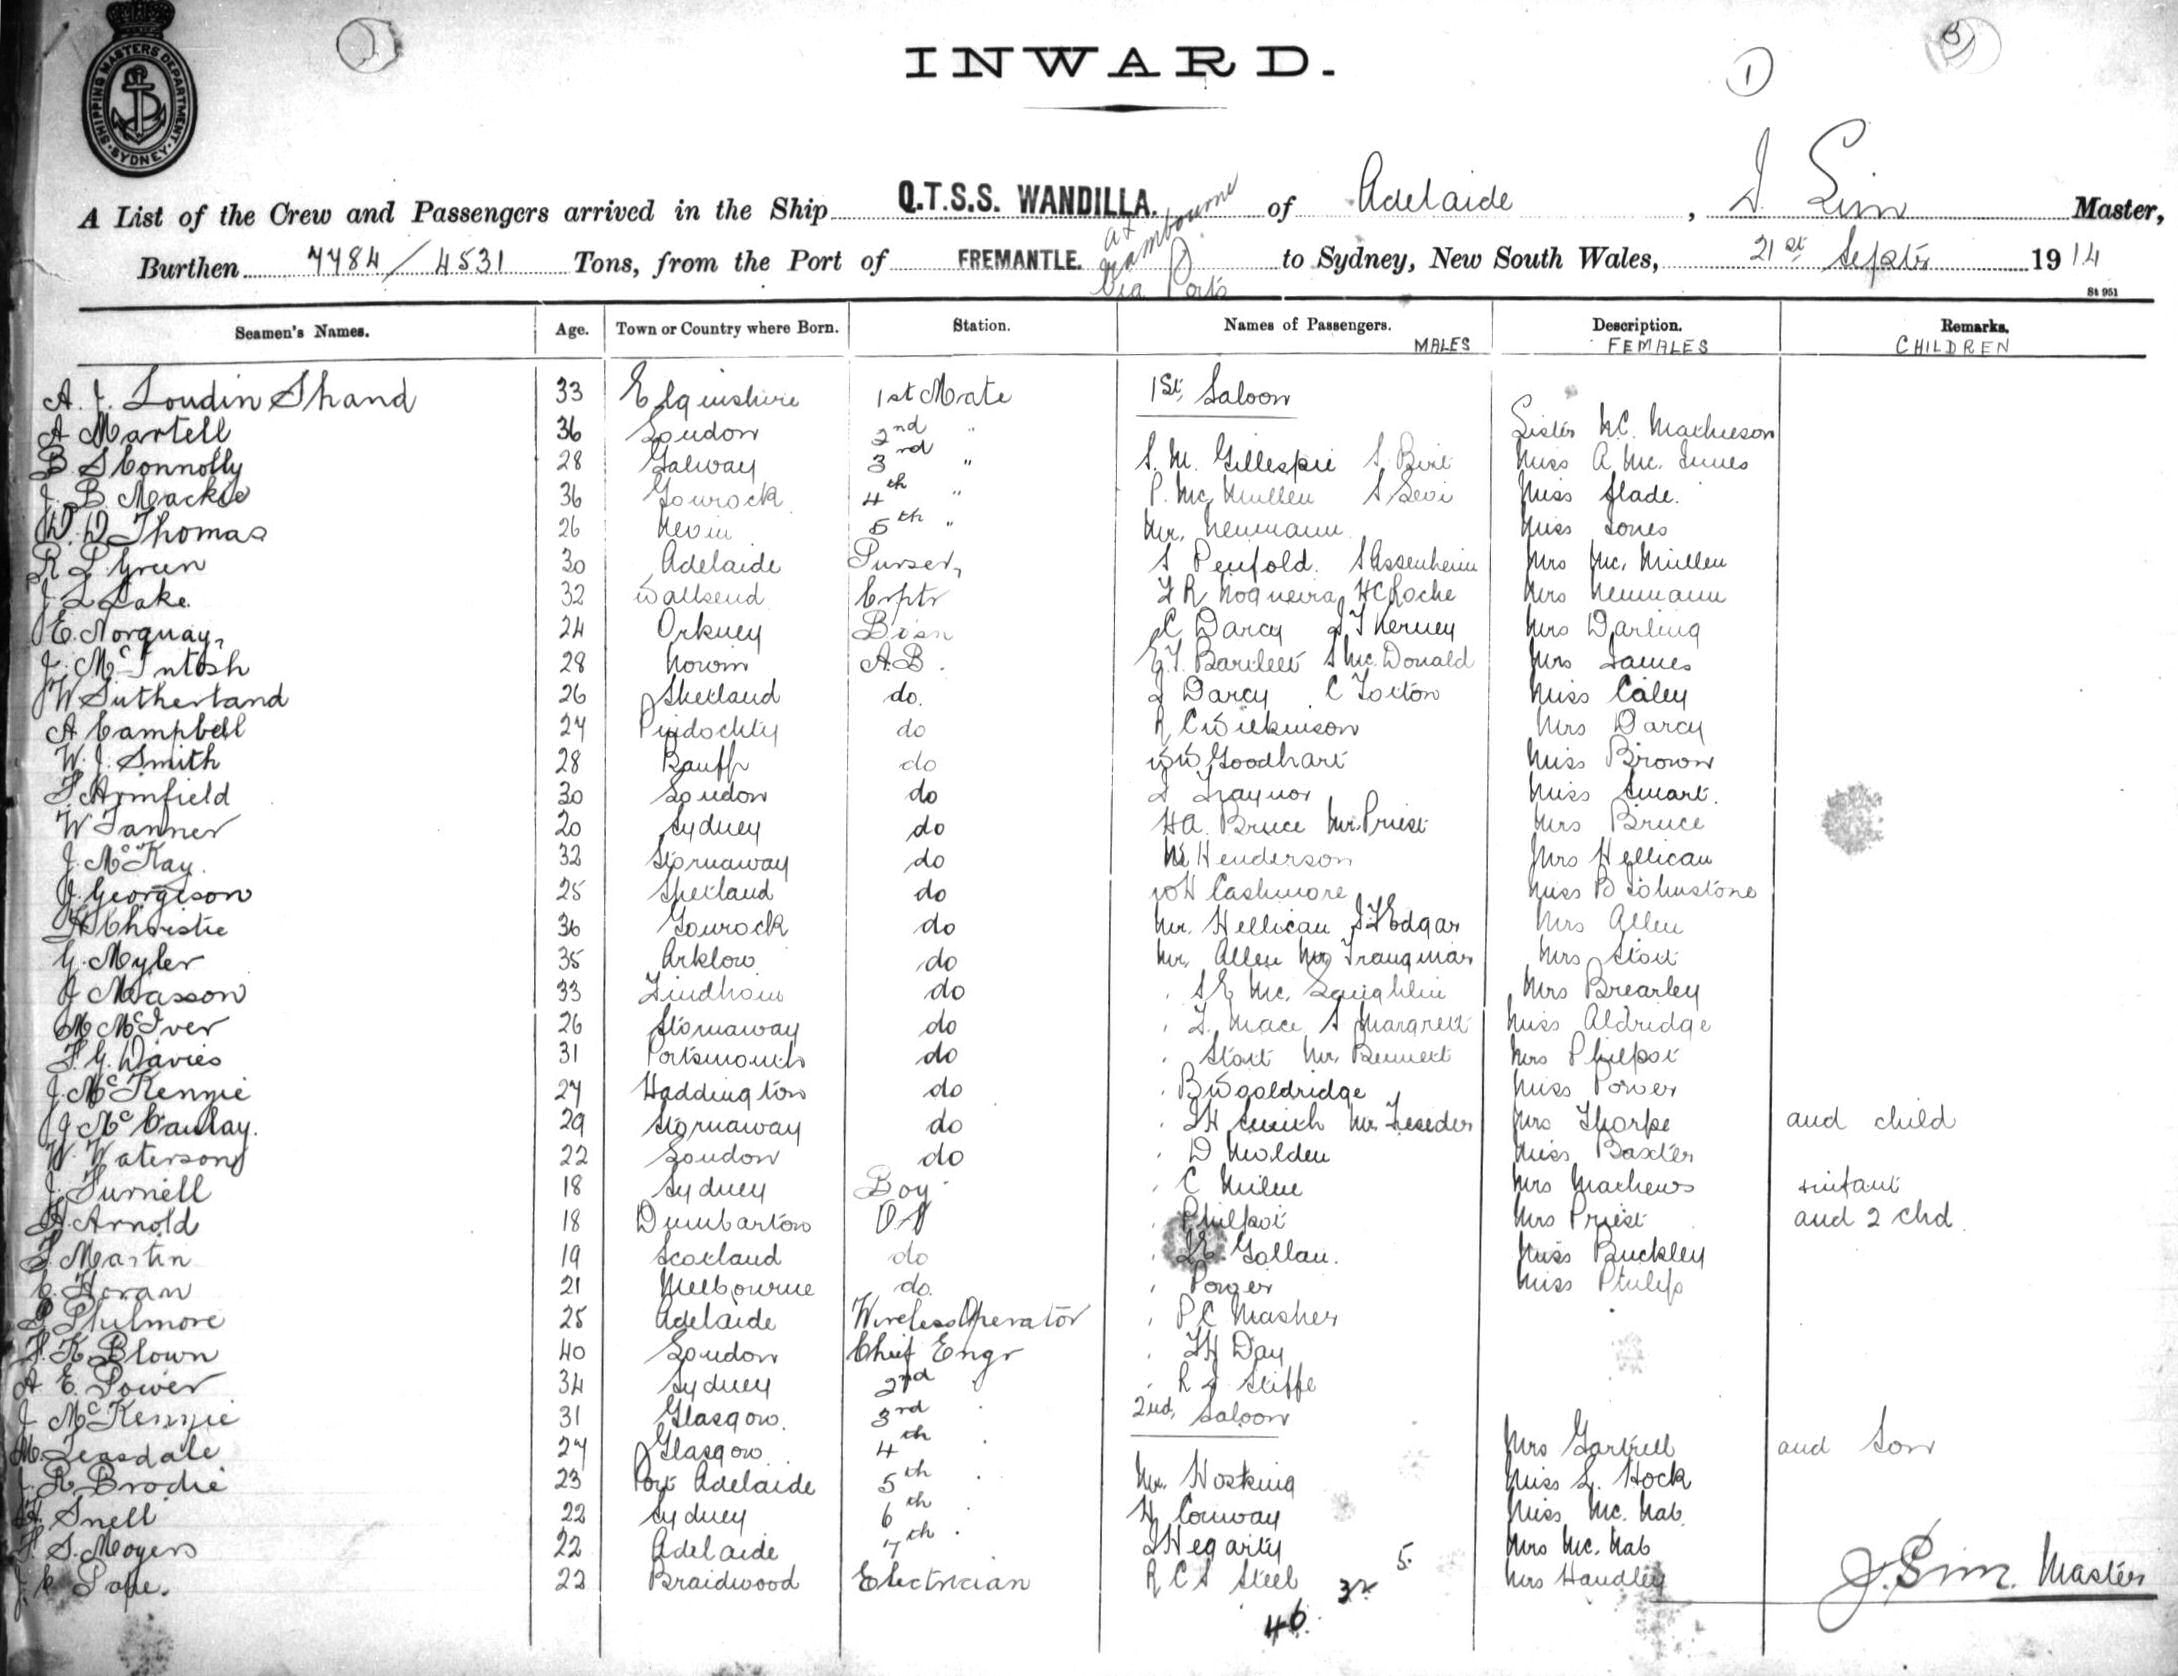 SHIPPING MASTERS DEPARTMENT
SYDNEY
INWARD.
1
A List of the Crew and Passengers arrived in the Ship Q.T.S.S. WANDILLA. of Adelaide, J Sim Master,
Burthen 7784/4531 Tons, from the Port of FREMANTLE. via Ports to Sydney, New South Wales, 21st Septr 1914
St 951
Seamen's Names. Age. Town or Country where Born. Station. Names of Passengers. MALES Description. FEMALES Remarks. CHILDREN
A. J. Loudin Shand 33 Elginshire 1st Mate 1st Saloon
A Martell 36 London 2nd " Sister McMathieson
B. S Connolly 28 Galway 3rd " S. M. Gillespie S. Birt Miss A Mc. Innes
J. B. Mackie 36 Gourock 4th " P. Mc Mullen S Levi Miss Slade.
W. D. Thomas 26 Nevin 5th " Mr. Neumann Miss Jones
R L Green 30 Adelaide Purser, S Penfold. S Assenheim Mrs Mc. Mullen
J. L Lake 32 Wallsend Crptr F R Noqueira HC Roche Mrs Neumann
E. Norquay, 24 Orkney Bosn C Darcy J T Kerney Mrs Darling
J. McIntosh 28 A.B. E. T. Bartlett S Mc. Donald Mrs James
W Sutherland 26 Shetland do. J Darcy C Toxton Miss Caley
A Campbell 27 do R C Wilkinson Mrs Darcy
W. J. Smith 28 Banff do WW Goodhart Miss Brown
F. Armfield 30 London do J Traynor Miss Smart.
W Tanner 20 Sydney do HA. Bruce Mr. Priest Mrs Bruce
J. McKay. 32 Stornaway do Henderson Mrs Hellican
J. Georgeson 25 Shetland do WH Cashmore Miss B Johnstone
Christie 36 Gourock do Mr. Hellican J F Edgar Mrs Allen
G. Myler 35 Arklow do Mr. Allen Mr Tranqmar Mrs Stott
J Masson 33 Findhorn do S E Mc. Laughlin Mrs Brearley
M McIver 26 Stornaway do T. Mace S Margrett Miss Aldridge
F. G. Davies 31 Portsmouth do Stott Mr. Bennett Mrs Philpot
J. McKenzie 27 Haddington do B Wooldridge Miss Power
J McCaulay. 29 Stornaway do Smith Mr. Mrs Thorpe and child
W. Waterson 22 London do D Molden Miss Baxter
J. Turnell 18 Sydney Boy C Milne Mrs Mathews infant
A. Arnold 18 Dumbarton OS Philpot Mrs Priest and 2 chd
Martin 19 Scotland do Gollan. Miss Buckley
C. Horan 21 Melbourne do. Power Miss Philip
Philmore 25 Adelaide Wireless Operator P C Masher
F. K. Blown 40 London Chief Engr Day
A. E. Power 34 Sydney 2nd R J Stiffe
J McKenzie 31 Glasgow. 3rd 2nd, Saloon
M. Teasdale 27 Glasgow 4th Mrs Gartrell and Son
J. R Brodie 23 Port Adelaide 5th Mr. Hosking Miss L. Hock
Snell 22 Sydney 6th H Conway Miss Mc. Nab
F. S. Moyers 22 Adelaide 7th J Hegarty Mrs Mc. Nab
J. Pope. 22 Braidwood Electrician R C S Steel Mrs Handley
5.
J. Sim. Master
46.